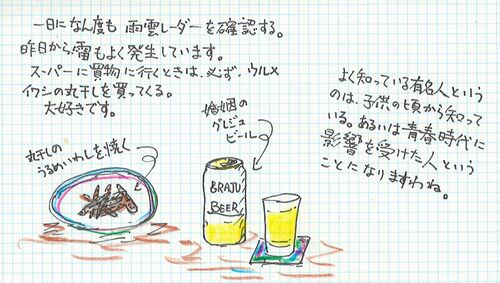 一日になん度も 雨雲レーダーを確認する。
昨日から雷もよく発生しています。
スーパーに買物に行くときは、必ず、ウルメ
イワシの丸干しを買ってくる。
大好きです。
よく知っている有名人という
のは、子供の頃から知って
いる。あるいは青春時代に
影響を受けた人という
ことになりますわね。
婚姻の
グレジュ
ビール
丸干しの
うるめいわしを焼く
BRAJU
BEER